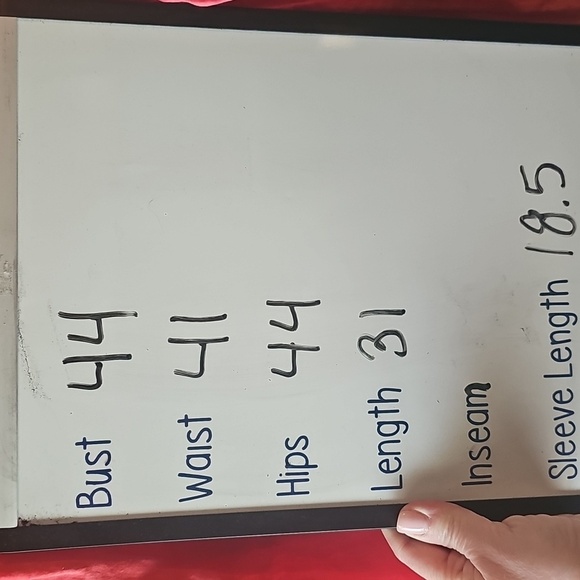 Bust 44
Waist 41
Hips 44
Length 31
Inseam
Sleeve Length 18.5